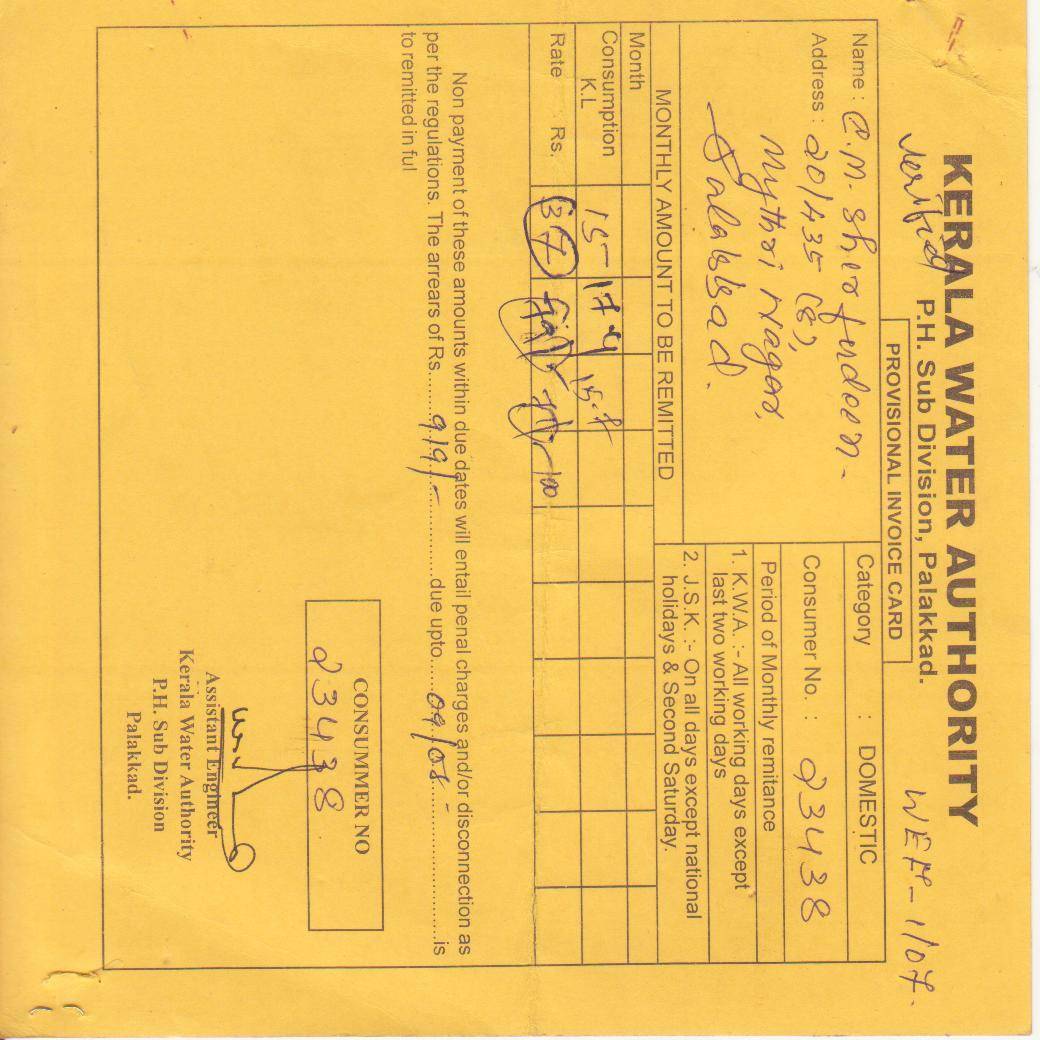 KERALA WATER AUTHORITY
verified P.H. Sub Division, Palakkad. WEF-1/07.
PROVISIONAL INVOICE CARD
Name : C.M. Sherfudeen.
Address : 20/435 (8),
Mythri Nagar,
Palakkad.
Category : DOMESTIC
Consumer No. : 23438
Period of Monthly remitance
1. K.W.A. :- All working days except
last two working days
2. J.S.K. :- On all days except national
holidays & Second Saturday.
MONTHLY AMOUNT TO BE REMITTED
Month
Consumption K.L 15 17.4 15.8
Rate Rs. 37 100
Non payment of these amounts within due dates will entail penal charges and/or disconnection as
per the regulations. The arrears of Rs.......919/-..........due upto......09/08-..................is
to remitted in ful
CONSUMMER NO
23438
Assistant Engineer
Kerala Water Authority
P.H. Sub Division
Palakkad.